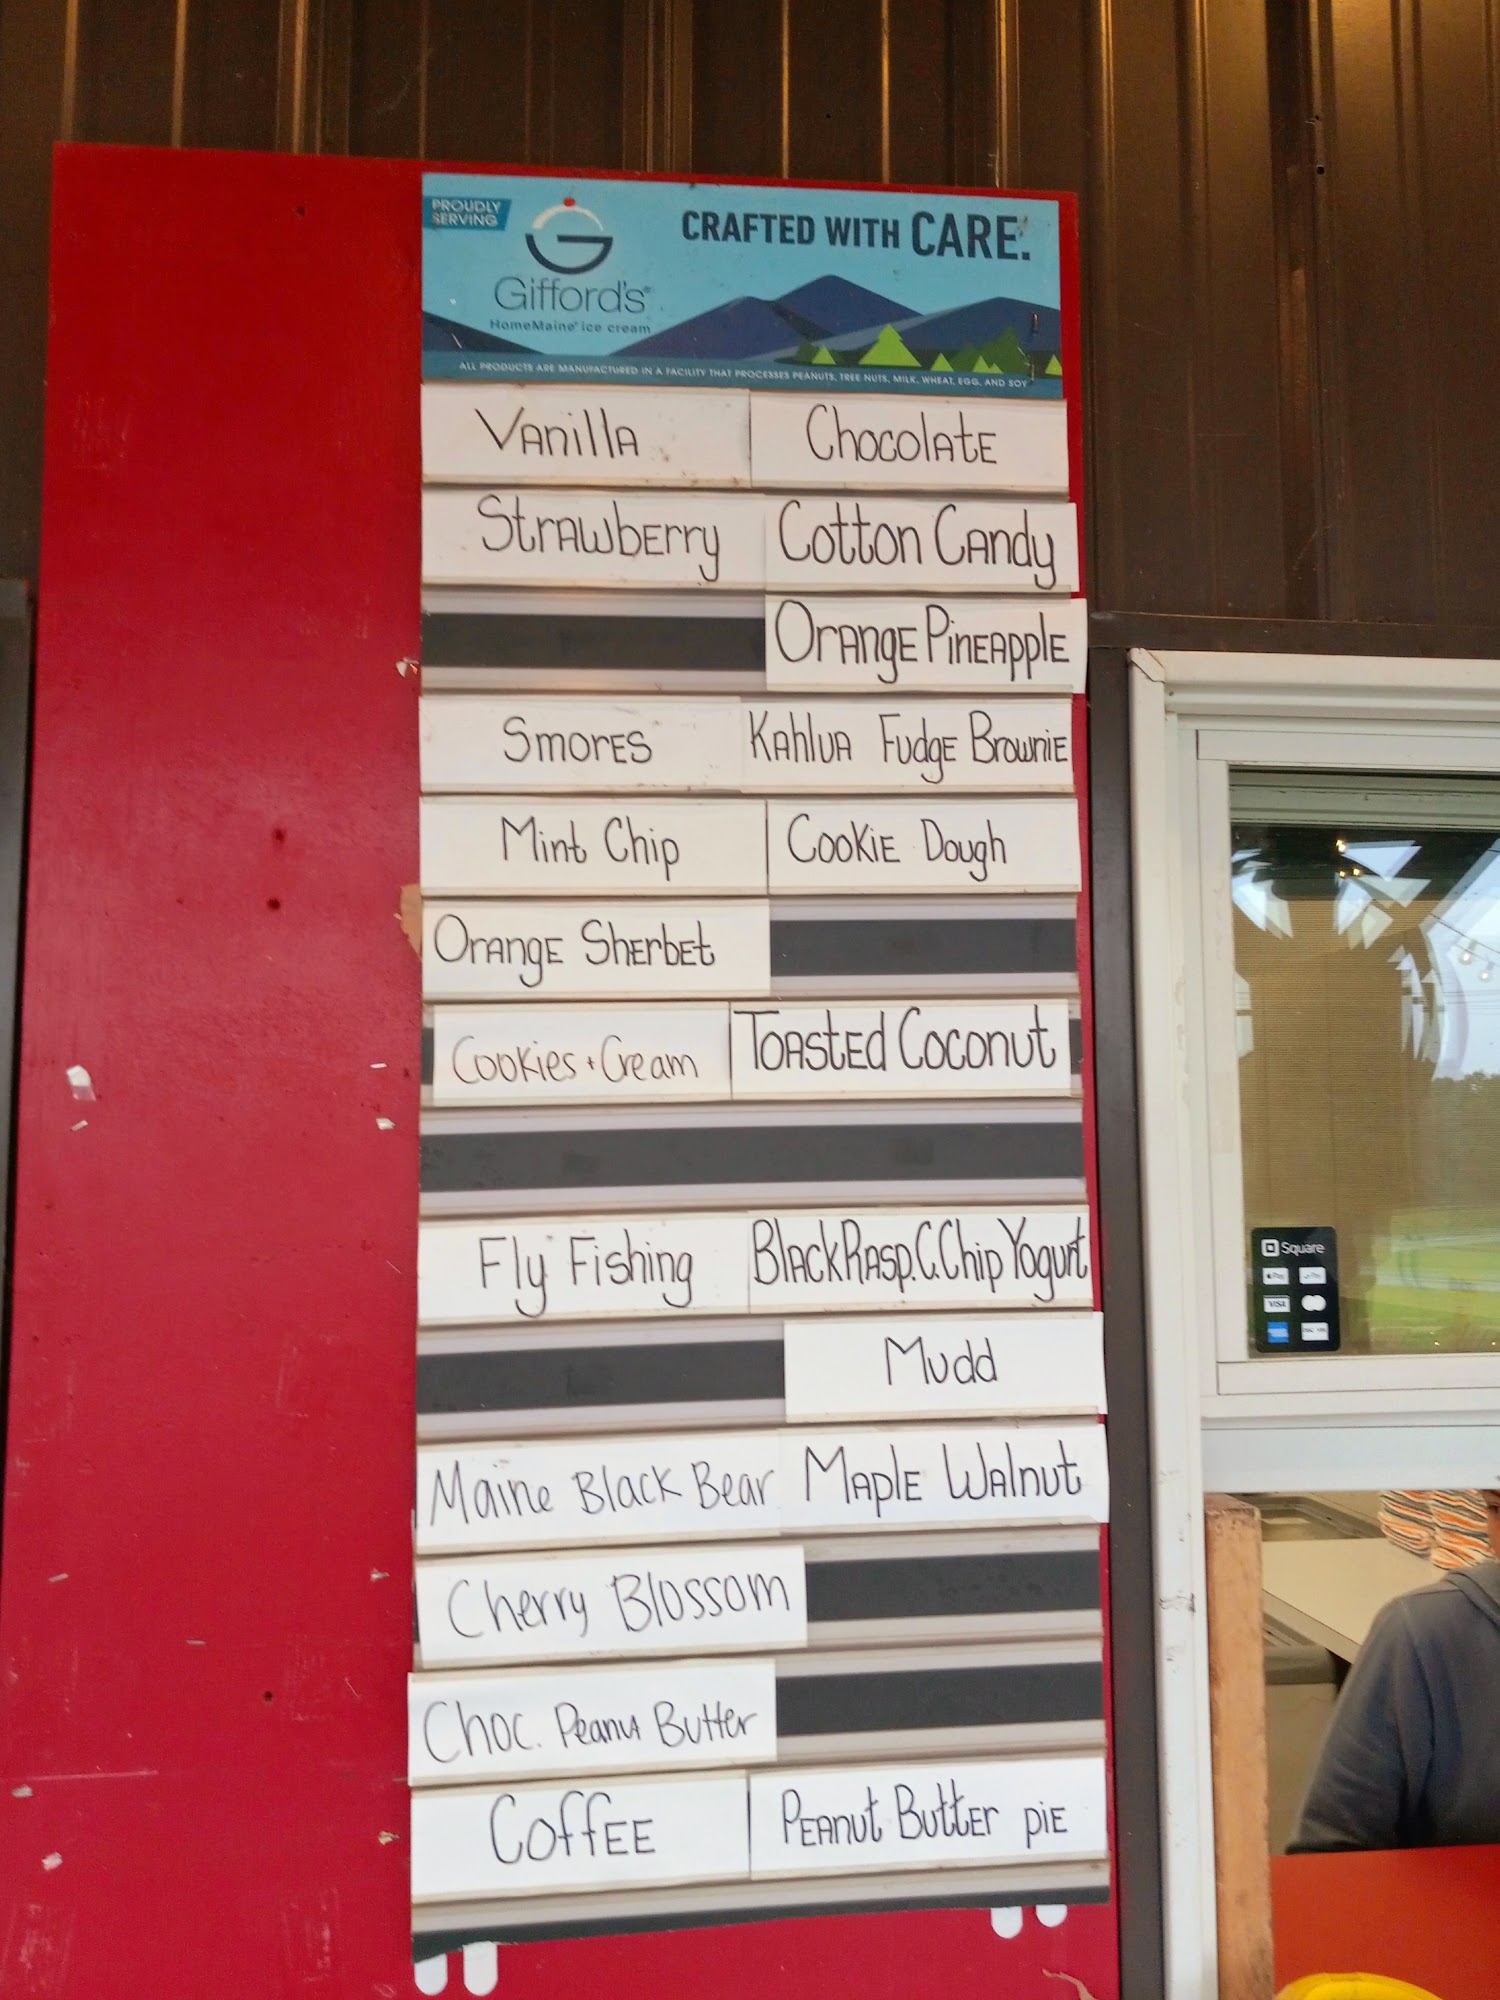 PROUDLY
SERVING
G
Gifford's®
HomeMaine® ice cream
CRAFTED WITH CARE.
ALL PRODUCTS ARE MANUFACTURED IN A FACILITY THAT PROCESSES PEANUTS, TREE NUTS, MILK, WHEAT, EGG, AND SOY
Vanilla
Chocolate
Strawberry
Cotton Candy
Orange Pineapple
Smores
Kahlua Fudge Brownie
Mint Chip
Cookie Dough
Orange Sherbet
Cookies + Cream
Toasted Coconut
Fly Fishing
Black Rasp. C. Chip Yogurt
Mudd
Maine Black Bear
Maple Walnut
Cherry Blossom
Choc. Peanut Butter
Coffee
Peanut Butter pie
Square
Pay
Pay
VISA